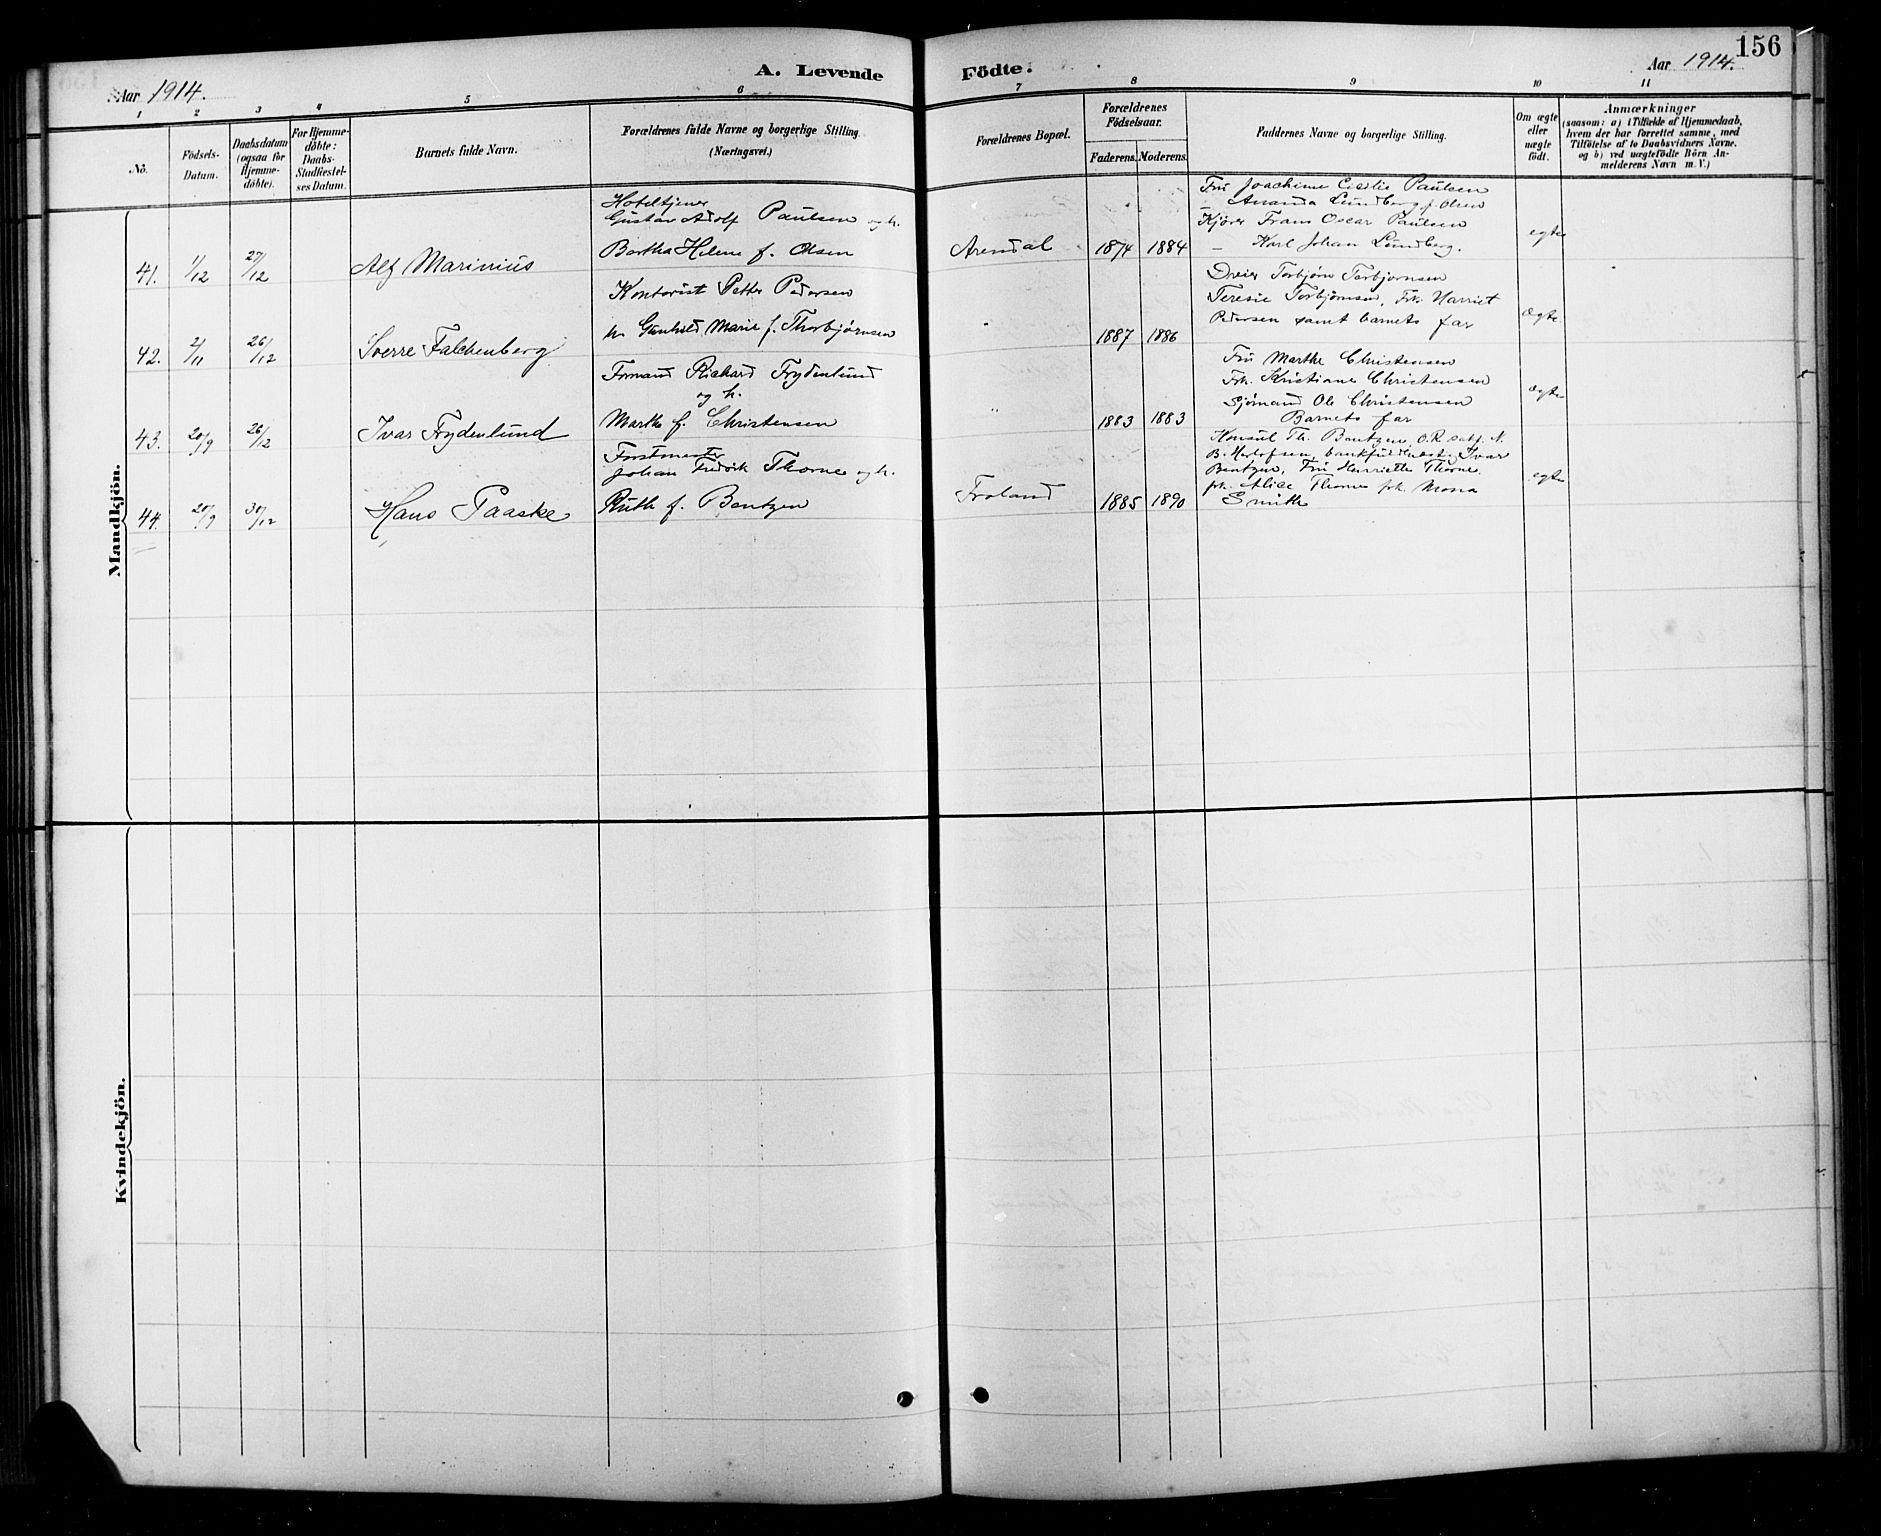 156
Aar 1914.
A. Levende Födte.
Aar 1914.
1 2 3 4 5 6 7 8 9 10 11
No.
Födsels-Datum.
Daabsdatum (ogsaa for Hjemme-döbte).
For Hjemme-döbte: Daabs-Stadfæstel-ses Datum.
Barnets fulde Navn.
Forældrenes fulde Navne og borgerlige Stilling
(Næringsvei.)
Forældrenes Bopæl.
Forældrenes Födselsaar.
Faderens. Moderens.
Faddernes Navne og borgerlige Stilling.
Om ægte eller uægte födt.
Anmærkninger
(saasom: a) i Tilfælde af Hjemmedaab,
hvem der har forrettet samme, med
Tilföielse af to Daabsvidners Navne.
og b) ved uægtefödte Börn An-
melderens Navn m. V.)
Mandkjön.
41. 1/12 27/12 Alf Marinius
Hoteltjener
Gustav Adolf Paulsen og h.
Bertha Helene f. Olsen
Arendal 1874 1884
Fru Joachime Cecilie Paulsen
– Amanda Lundberg f. Olsen
Kjører Frans Oscar Paulsen
– Karl Johan Lundberg.
egte
42. 2/11 26/12 Sverre Falchenberg
Kontorist Petter Pedersen
h. Gunhild Marie f. Thorbjørnsen
" 1887 1886
Dreier Torbjørn Torbjørnsen
Teresie Torbjørnsen, Frk. Harriet
Pedersen samt barnets far
Ægte
43. 20/9 26/12 Ivar Frydenlund
Formand Richard Frydenlund
og h.
Marthe f. Christensen
" 1883 1883
Fru Marthe Christensen
Frk. Kristiane Christensen
Sjømand Ole Christensen
Barnets far
Ægte
44. 20/9 30/12 Hans Paaske
Forstmester
Johan Fredrik Thorne og h.
Ruth f. Bentzen
Froland 1885 1890
Konsul Th. Bentzen, O.R.
B. Herlofsen, Ivar
Bentzen, Fru Henriette Thorne,
frk. Alice Thorne frk. Mona
Smith
egte
Kvindekjön.